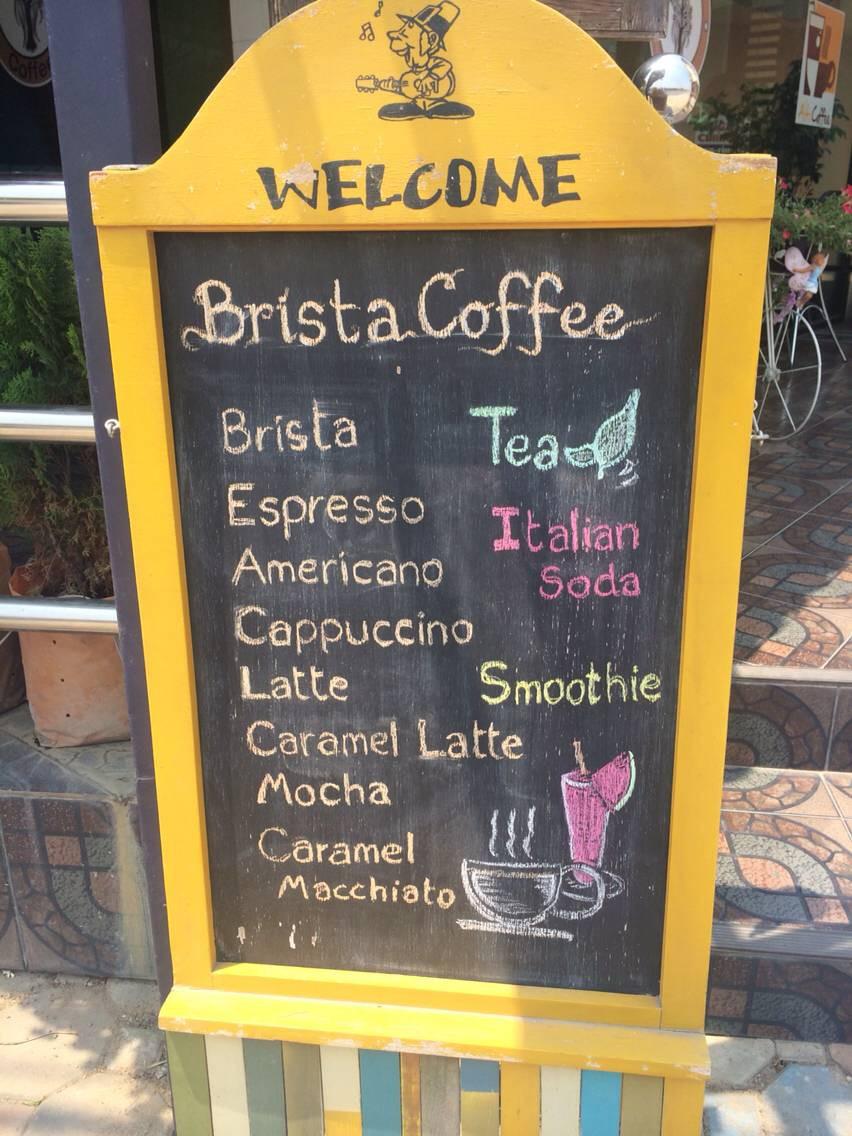 WELCOME
Brista Coffee
Brista
Espresso
Americano
Cappuccino
Latte
Caramel Latte
Mocha
Caramel
Macchiato
Tea
Italian
Soda
Smoothie
Coffee
Coffee